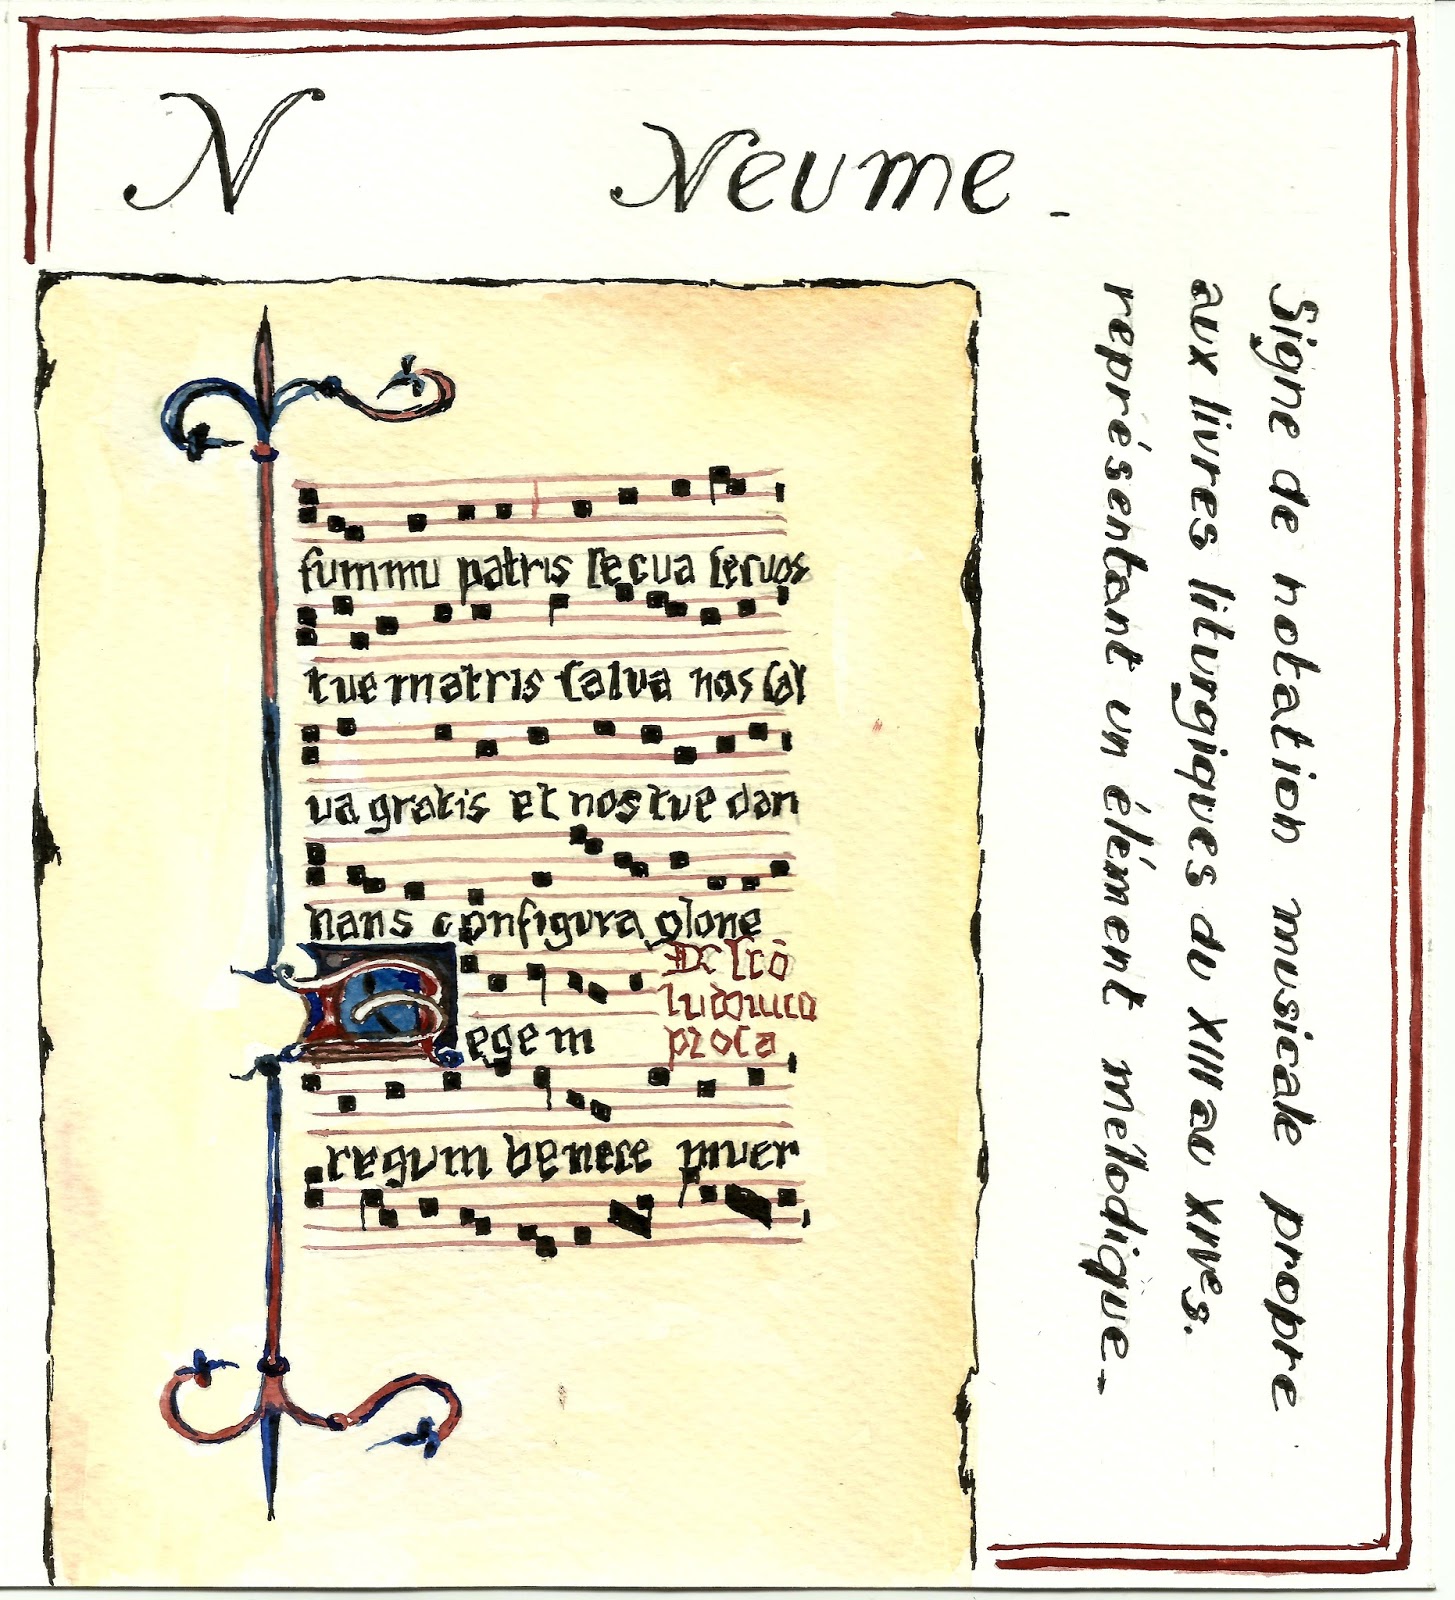 N
Neume -
Signe de notation musicale propre
aux livres liturgiques du XIII au XIVe s.
représentant un élément mélodique -
summu patris secua secuos
tue matris salva nos sal
va gratis et nos tue dan
nans configura glone
De sco
ludouico
prosa
Regem
regum benece puer